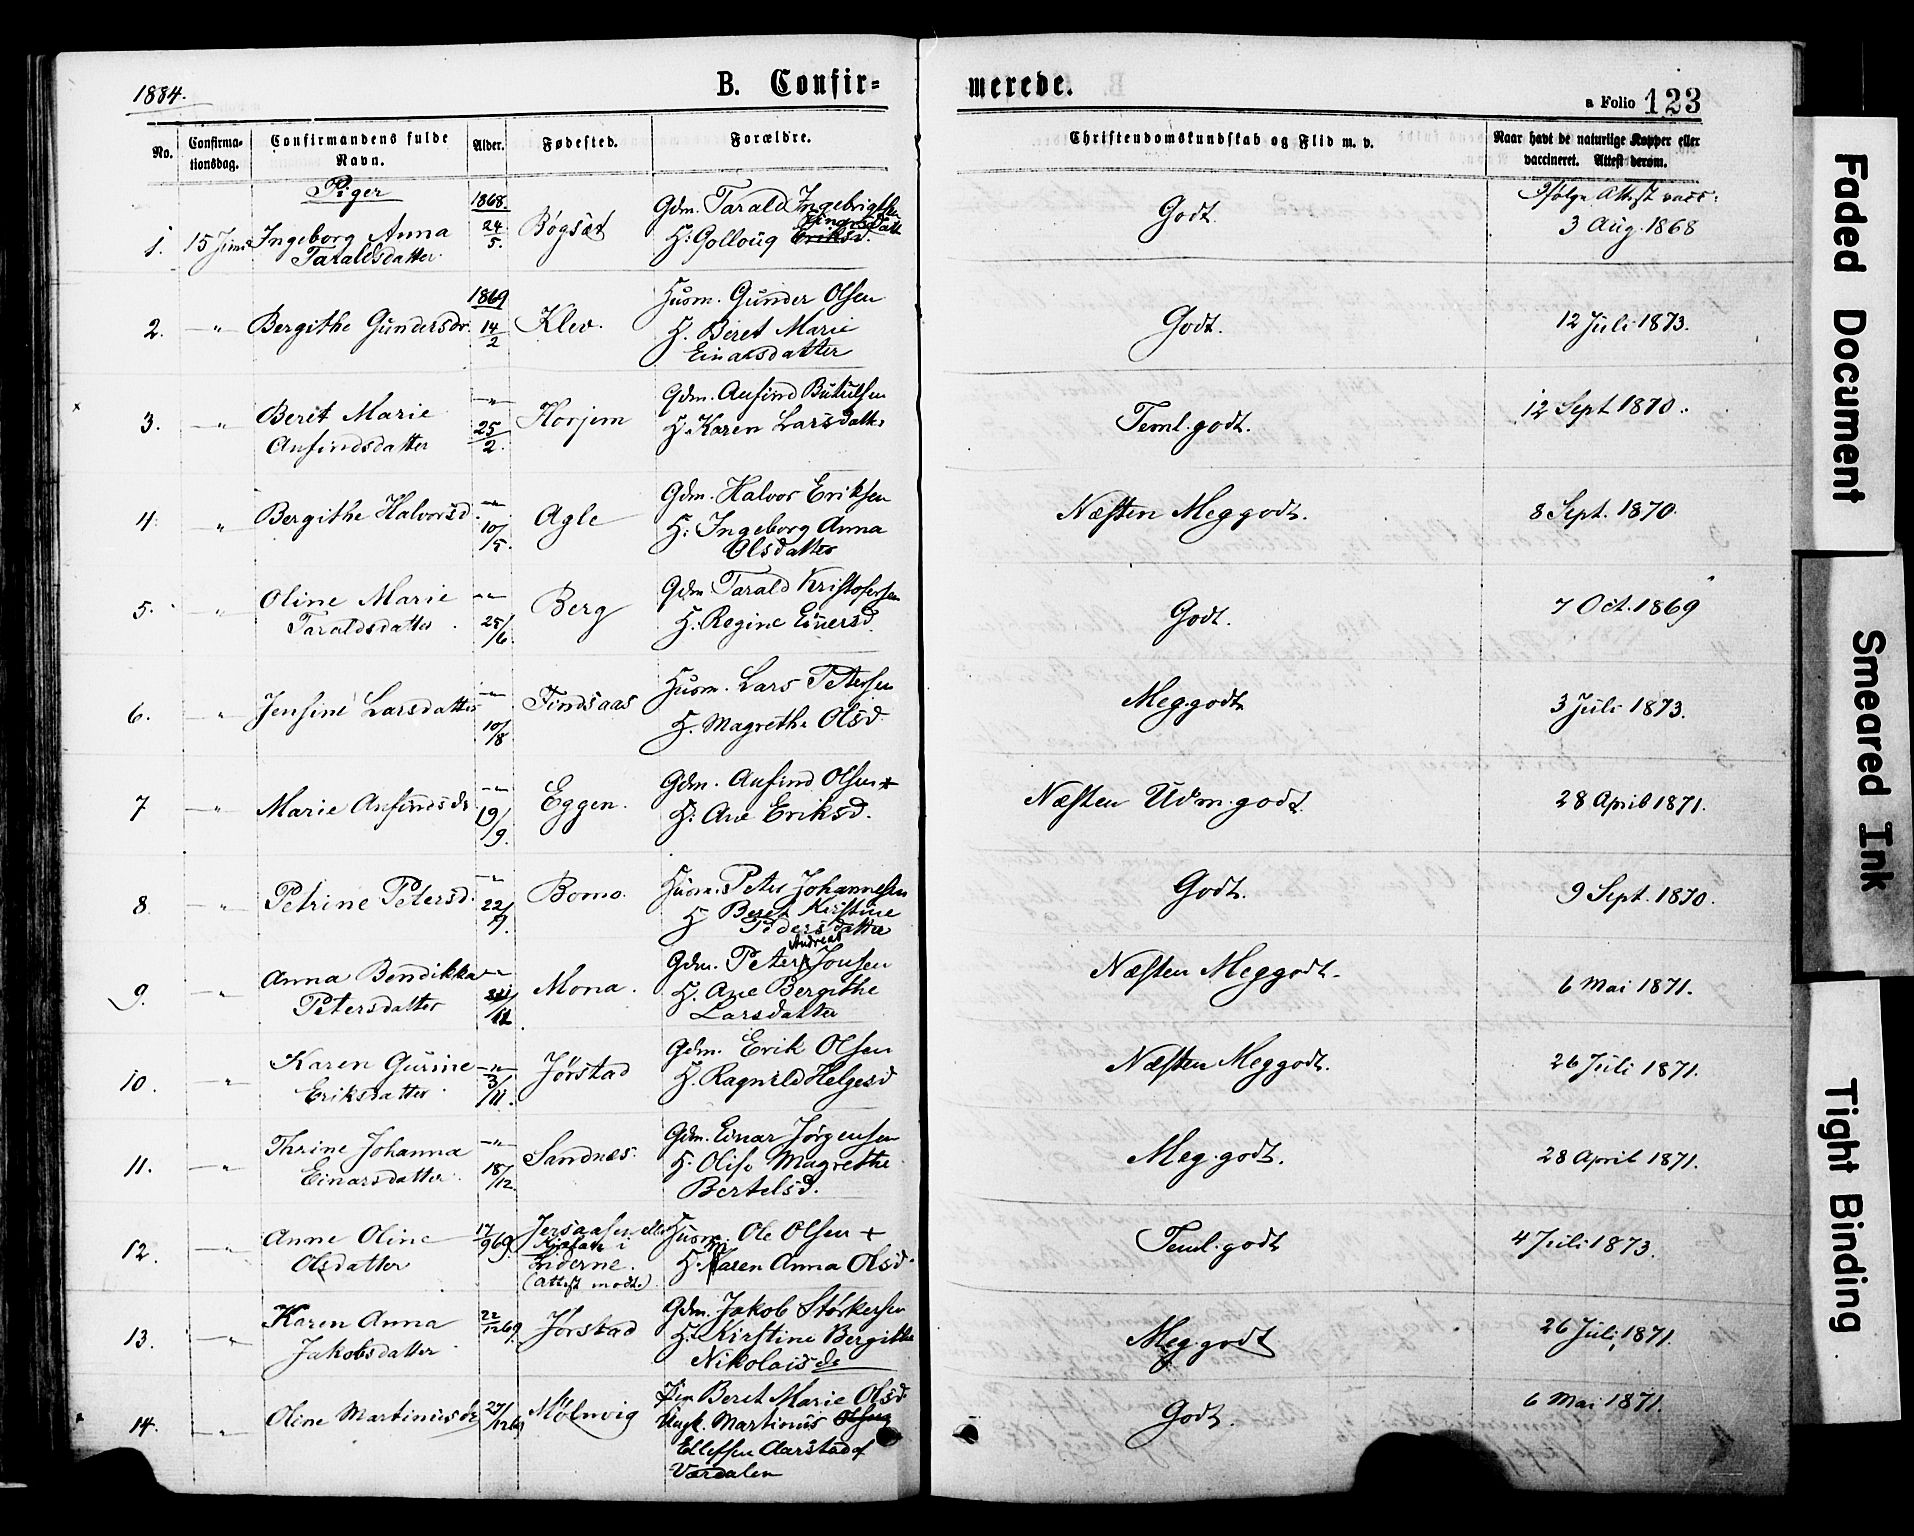 1884.
B. Confir-
merede.
a Folio 123
No.
Confirma-
tionsdag.
Confirmandens fulde
Navn.
Alder.
Fødested.
Forældre.
Christendomskundskab og Flid m. v.
Naar havt de naturlige Kopper eller
vaccineret. Attest derom.
Piger
1. 15 Juni Ingeborg Anna
Taraldsdatter.
1868.
24/5.
Bøgsæt
Gdm. Tarald Ingebrigtsen
H: Golloug Eriksd.
Godt.
Ifølge Attest vacc:
3 Aug. 1868
2. —„— Bergithe Gundersdr.
1869
14/2
Klev.
Husm. Gunder Olsen
H. Beret Marie
Einarsdatter
Godt.
12 Juli 1873.
3. —„— Berit Marie
Anfindsdatter
—„—
25/2.
Horjem
Gdm. Anfind Butulsen
H. Karen Larsdatter
Teml. godt.
12 Sept 1870.
4. „ Bergithe Halvorsd.
—„—
10/5.
Agle
Gdm. Halvor Eriksen
H: Ingeborg Anna
Olsdatter
Næsten Meg godt.
8 Sept. 1870.
5. „ Oline Marie
Taraldsdatter
—„—
25/6.
Berg
Gdm Tarald Kristofersen
H. Regine Einersd.
Godt.
7 Oct. 1869
6. „ Jensine Larsdatter
—„—
10/8
Findsaas
Husm. Lars Petersen
H. Magrethe Olsd.
Meg. godt
3 Juli 1873.
7 —„— Marie Anfindsdr.
—„—
19/9.
Eggen.
Gdm. Anfind Olsen +
H. Ane Eriksd.
Næsten Udm. godt.
28 April 1871.
8 —„— Petrine Petersd.
—„—
22/9.
Bomo.
Husm. Peter Johannesen
H Beret Kristine
Pedersdatter
Godt.
9 Sept. 1870.
9. —„— Anna Bendikka
Petersdatter
—„—
Mona.
Andreas
Gdm. Peter Jonsen
H. Ane Bergithe
Larsdatter
Næsten Meg godt.
6 Mai 1871.
10. —„— Karen Gurine
Eriksdatter
—„—
3/11.
Jørstad
Gdm. Erik Olsen
H. Ragnild Helgesd
Næsten Meg godt.
26 Juli 1871.
11. —„— Thrine Johanna
Einarsdatter.
—„—
18/12.
Sandnes.
Gdm. Einar Jørgensen
H. Olise Magrethe
Bertelsd.
Meg. godt.
28 April 1871.
12. —„— Anne Oline
Olsdatter
17/9 69.
eller
i
Inderne.
(Attest modt.)
Husm. Ole Olsen +
H. Maren Anna Olsd.
Teml. godt
4 Juli 1873.
13. —„— Karen Anna
Jakobsdatter
22/12 69.
Jørstad
Gdm. Jakob Størkersen
H. Kirstine Bergitte
Nikolaisdr
Meg. godt
26 Juli, 1871.
14. —„— Oline Martinusdr
27/12 69
Mølnvig
Pige Beret Marie Olsd.
Ungk. Martinus Olsen
Ellefsen Aarstad af
Værdalen
Godt.
6 Mai 1871.
Faded Document
Smeared Ink
Tight Binding